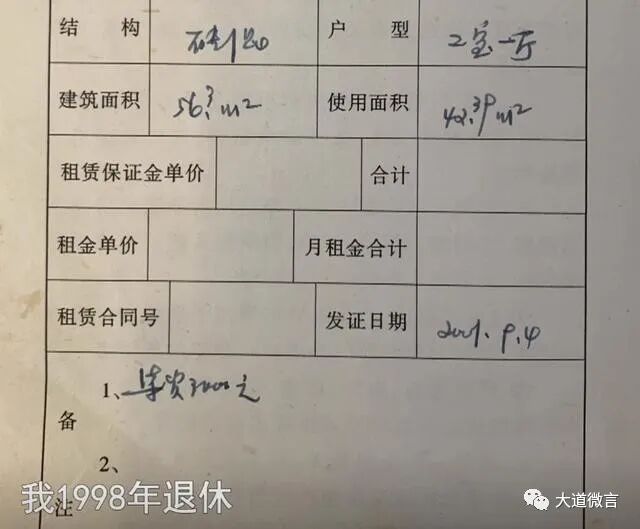 结构 砖混 户型 2室一厅
建筑面积 56.3m² 使用面积 42.39m²
租赁保证金单价 合计
租金单价 月租金合计
租赁合同号 发证日期 2001.9.4
1、集资3000元
备
2、
注
我1998年退休
大道微言